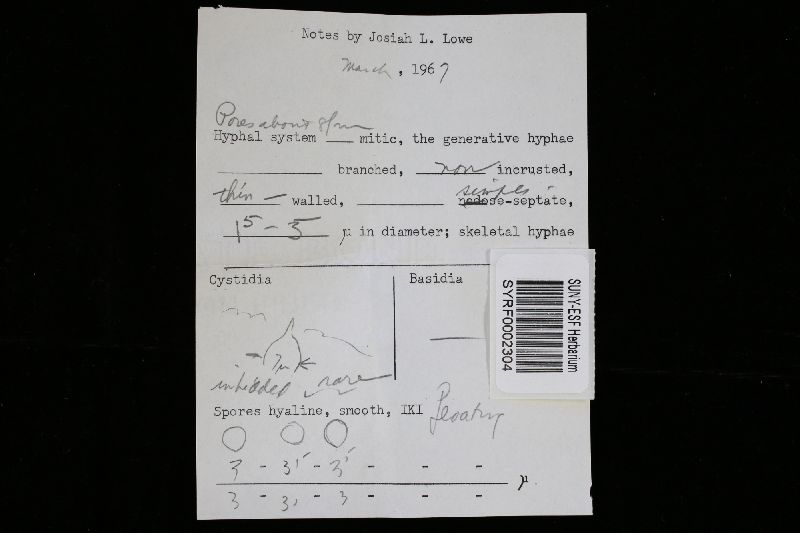 Notes by Josiah L. Lowe
March, 1967
Pores about 8/mm
Hyphal system ___ mitic, the generative hyphae
___ branched, non incrusted,
thin - walled, ___ simple nodose-septate,
1⁵ - 5 µ in diameter; skeletal hyphae
Cystidia
Basidia
7µ
imbedded, rare
Spores hyaline, smooth, IKI
3 - 3⁵ - 3⁵ - - -
3 - 3 - 3 - - - µ
SUNY-ESF Herbarium
SYRF0002304